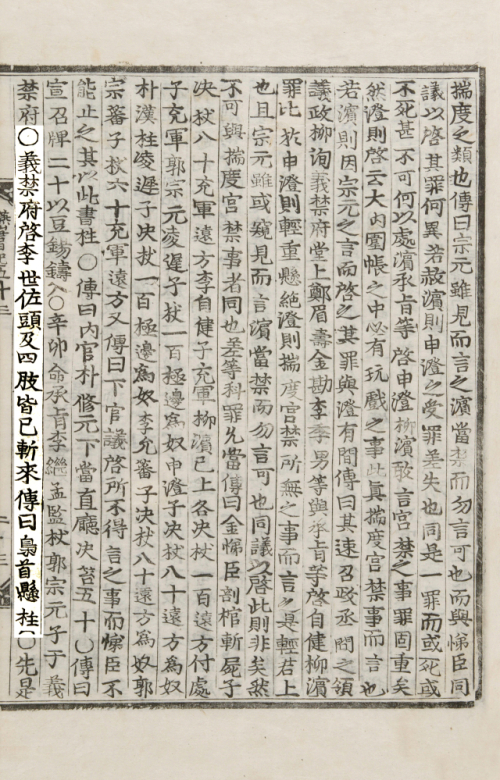 揣度之類也傳曰宗元雖見而言之濵當禁而勿言可也而與悌臣同
議以啓其罪何異若赦濵則申澄之受罪差失也同是一罪而或死或
不死甚不可何以處濵承旨等啓申澄柳濵敢言宮禁之事罪固重矣
然澄則啓云大內圍帳之中必有玩戲之事此眞揣度宮禁事而言也
若濵則因宗元之言而啓之其罪與澄有間傳曰其速召政丞問之領
議政柳洵義禁府堂上鄭眉壽金勘李季男等與承旨等啓自健柳濵
罪比於申澄則輕重懸絶澄則揣度宮禁所無之事而言之其輕若上
也且宗元雖或窺見而言濵當禁而勿言可也同議以啓此則非矣然
不可與揣度宮禁事者同也差等科罪允當傳曰金悌臣剖棺斬屍子
決杖八十充軍遠方李自健子充軍柳濵已上各決杖一百遠方付處
子充軍郭宗元凌遲子杖一百極邊爲奴申澄子決杖八十遠方爲奴
朴漢柱凌遲子決杖一百極邊爲奴李允蕃子決杖八十遠方爲奴郭
宗蕃子杖六十充軍遠方又傳曰下官議啓所不得言之事而悌臣不
能止之其以此書柱○傳曰內官朴修元下當直廳決笞五十○傳曰
宣召牌二十以豆錫鑄入○辛卯命承旨李繼孟監杖郭宗元子于義
禁府○義禁府啓李世佐頭及四肢皆已斬來傳曰梟首懸柱○先是